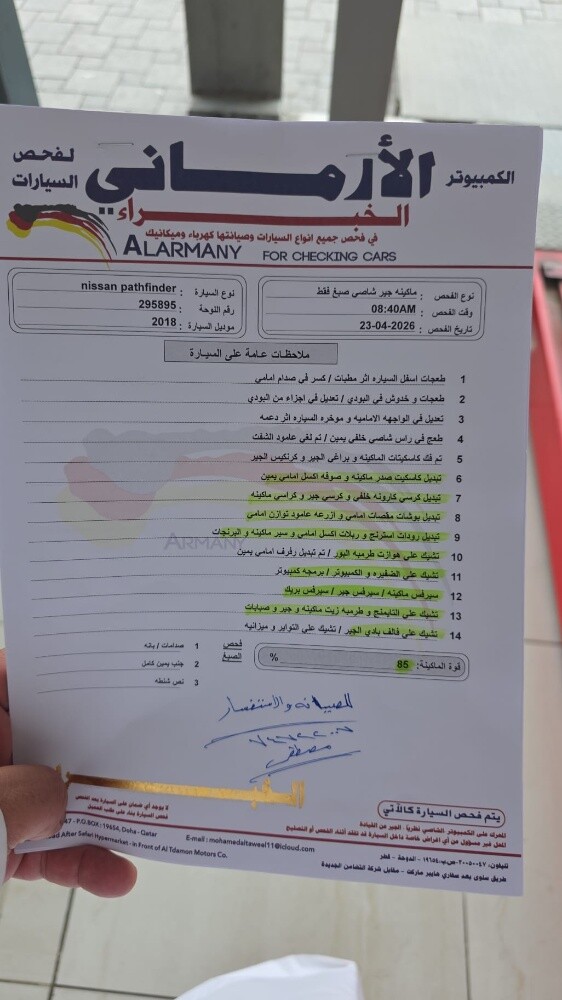 الأرماني
لفحص السيارات
الكمبيوتر
الخبراء
في فحص جميع انواع السيارات وصيانتها كهرباء وميكانيك
ALARMANY FOR CHECKING CARS
نوع السيارة : nissan pathfinder
رقم اللوحة : 295895
موديل السيارة : 2018
نوع الفحص : ماكينه جير شاصي صبغ فقط
وقت الفحص : 08:40AM
تاريخ الفحص : 23-04-2026
ملاحظات عامة على السيارة
1 طعجات اسفل السياره اثر مطبات / كسر في صدام امامي
2 طعجات و خدوش في البودي / تعديل في اجزاء من البودي
3 تعديل في الواجهه الاماميه و موخره السياره اثر دعمه
4 طعج في راس شاصي خلفي يمين / تم لغي عامود الشفت
5 تم فك كاسكيتات الماكينه و براغي الجير و كرنكيس الجير
6 تبديل كاسكيت صدر ماكينه و صوفه اكسل امامي يمين
7 تبديل كرسي كارونه خلفي و كرسي جير و كراسي ماكينه
8 تبديل بوشات مقصات امامي و اذرعه عامود توازن امامي
9 تبديل رودات استرنج و ربلات اكسل امامي و سير ماكينه و البرنجات
10 تشيك علي هوازت طرمبه البور / تم تبديل رفرف امامي يمين
11 تشيك علي الضفيره و الكمبيوتر / برمجه كمبيوتر
12 سيرفس ماكينه / سيرفس جير / سيرفس بريك
13 تشيك علي التايمنج و طرمبه زيت ماكينه و جير و صبابات
14 تشيك علي فالف بادي الجير / تشيك علي التواير و ميزانيه
قوة الماكينة: 85 %
فحص الصبغ
1 صدامات / بانه
2 جنب يمين كامل
3 نص شنطه
للصيانه والاستفسار
مصطفى
ARMANY
يتم فحص السيارة كالآتي
لا يوجد أي ضمان على السيارة بعد الفحص
فحص السيارة بناء على طلب العميل
P.O.BOX : 19654, Doha - Qatar
E-mail : mohamedaltaweel11@icloud.com
After Safari Hypermarket - in Front of Al Tdamon Motors Co.
طريق سلوى بعد سفاري هايبر ماركت - مقابل شركة التضامن الجديدة